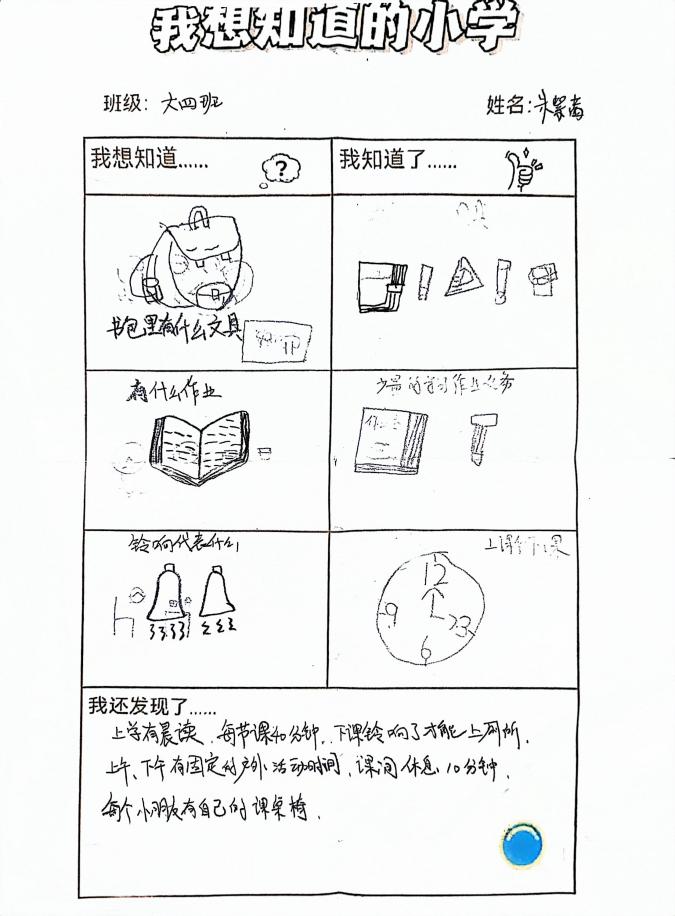 我想知道的小学
班级: 大四班
姓名:
我想知道......
?
我知道了......
书包里有什么文具
有什么作业
少量的学习作业任务
作业
铃响代表什么
上课和下课
12
9 3
6
我还发现了......
上学有晨读、每节课40分钟、下课铃响了才能上厕所、
上午、下午有固定的户外活动时间、课间休息10分钟、
每个小朋友有自己的课桌椅、